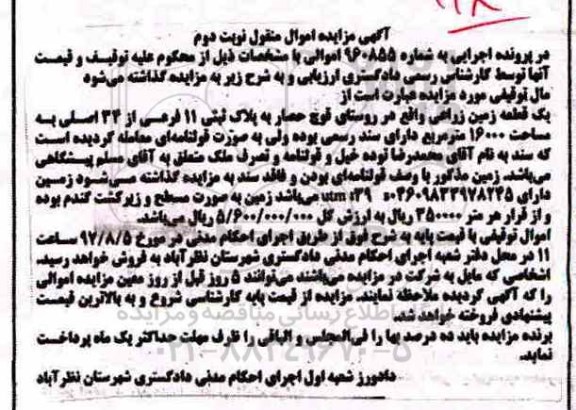 آگهی مزایده اموال منقول نوبت دوم
در پرونده اجرایی به شماره ۹۶۰۸۵۵ اموالی با مشخصات ذیل از محکوم علیه توقیف و قیمت
آنها توسط کارشناس رسمی دادگستری ارزیابی و به شرح زیر به مزایده گذاشته می‌شود
مال توقیفی مورد مزایده عبارت است از
یک قطعه زمین زراعی واقع در روستای قوچ حصار به پلاک ثبتی ۱۱ فرعی از ۳۴ اصلی به
مساحت ۱۶۰۰۰ مترمربع دارای سند رسمی بوده ولی به صورت قولنامه‌ای معامله گردیده است
که سند به نام آقای محمدرضا توده خیل و قولنامه و تصرف ملک متعلق به آقای مسلم پیشگاهی
می‌باشد. زمین مذکور با وصف قولنامه‌ای بودن و فاقد سند به مزایده گذاشته می‌شود زمین
دارای ۰۴۶۰۹۸۳۳۹۷۸۲۴۵s utm :۳۹ می‌باشد زمین به صورت مسطح و زیرکشت گندم بوده
و از قرار هر متر ۳۵۰۰۰۰ ریال به ارزش کل ۵/۶۰۰/۰۰۰/۰۰۰ ریال می‌باشد.
اموال توقیفی با قیمت پایه به شرح فوق از طریق اجرای احکام مدنی در مورخ ۹۷/۸/۵ ساعت
۱۱ در محل دفتر شعبه اجرای احکام مدنی دادگستری شهرستان نظرآباد به فروش خواهد رسید.
اشخاصی که مایل به شرکت در مزایده می‌باشند می‌توانند ۵ روز قبل از روز معین مزایده اموالی
را که آگهی گردیده ملاحظه نمایند. مزایده از قیمت پایه کارشناسی شروع و به بالاترین قیمت
پیشنهادی فروخته خواهد شد.
برنده مزایده باید ده درصد بها را فی‌المجلس و الباقی را ظرف مهلت حداکثر یک ماه پرداخت
نماید.
دادورز شعبه اول اجرای احکام مدنی دادگستری شهرستان نظرآباد